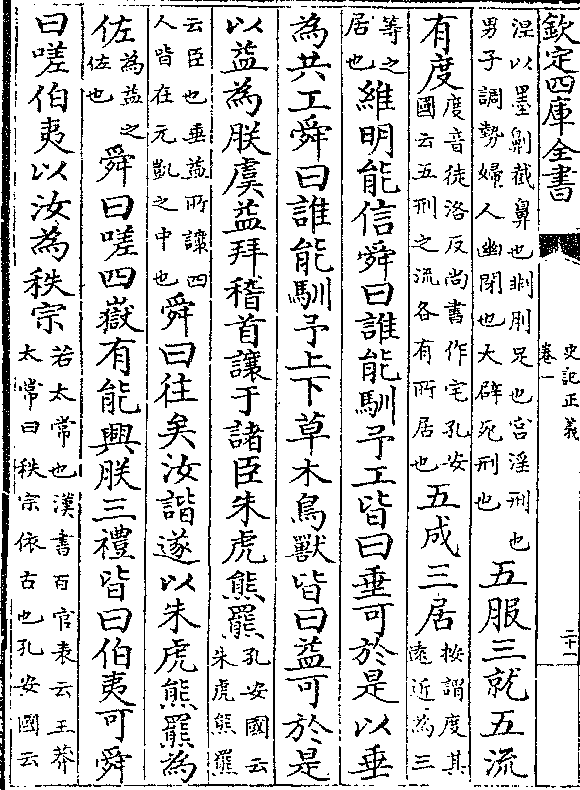 欽定四庫全書
史記正義
卷一
二十一
涅以墨劓截鼻也剕刖足也宮淫刑也
男子調勢婦人幽閉也大辟死刑也
五服三就五流
有度
度音徒洛反尚書作宅孔安
國云五刑之流各有所居也
五成三居
按謂度其
遠近為三
等之
居也
維明能信舜曰誰能馴予工皆曰垂可於是以垂
為共工舜曰誰能馴予上下草木鳥獸皆曰益可於是
以益為朕虞益拜稽首讓于諸臣朱虎熊羆
孔安國云
朱虎熊羆
云臣也垂益所讓四
人皆在元凱之中也
舜曰往矣汝諧遂以朱虎熊羆為
佐
為益之
佐也
舜曰嗟四嶽有能興朕三禮皆曰伯夷可舜
曰嗟伯夷以汝為秩宗
若太常也漢書百官表云王莽
太常曰秩宗依古也孔安國云